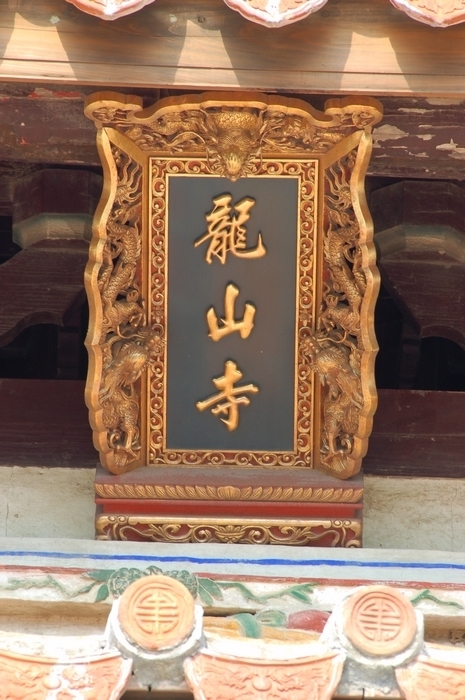 龍山寺